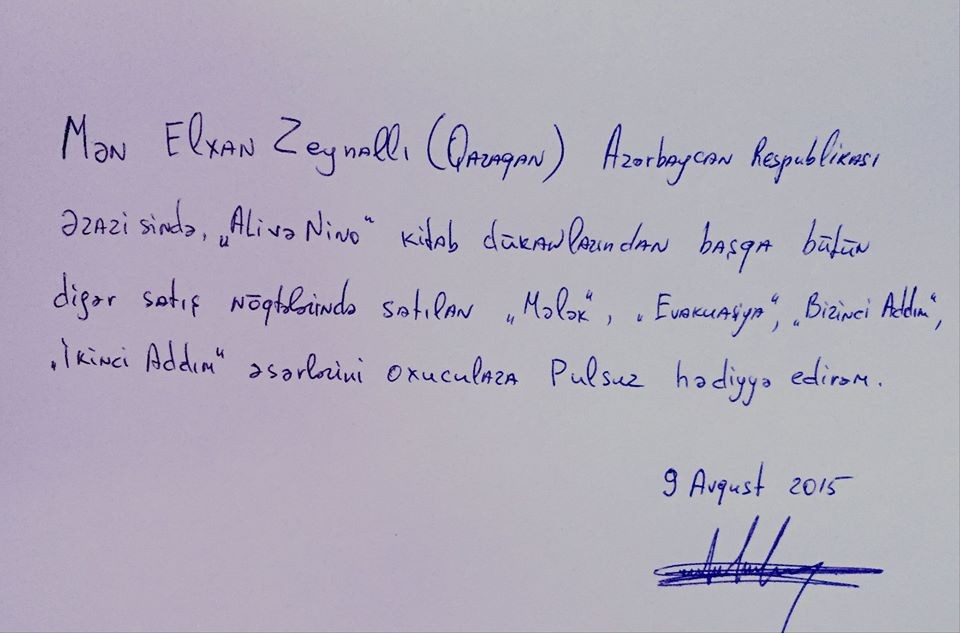 Mən Elxan Zeynallı (Qaraqan) Azərbaycan Respublikası
ərazisində, „Əli və Nino“ kitab dükanlarından başqa bütün
digər satış nöqtələrində satılan „Mələk“, „Evakuasiya“, „Birinci Addım“,
„İkinci Addım“ əsərlərini oxuculara Pulsuz hədiyyə edirəm.
9 Avqust 2015